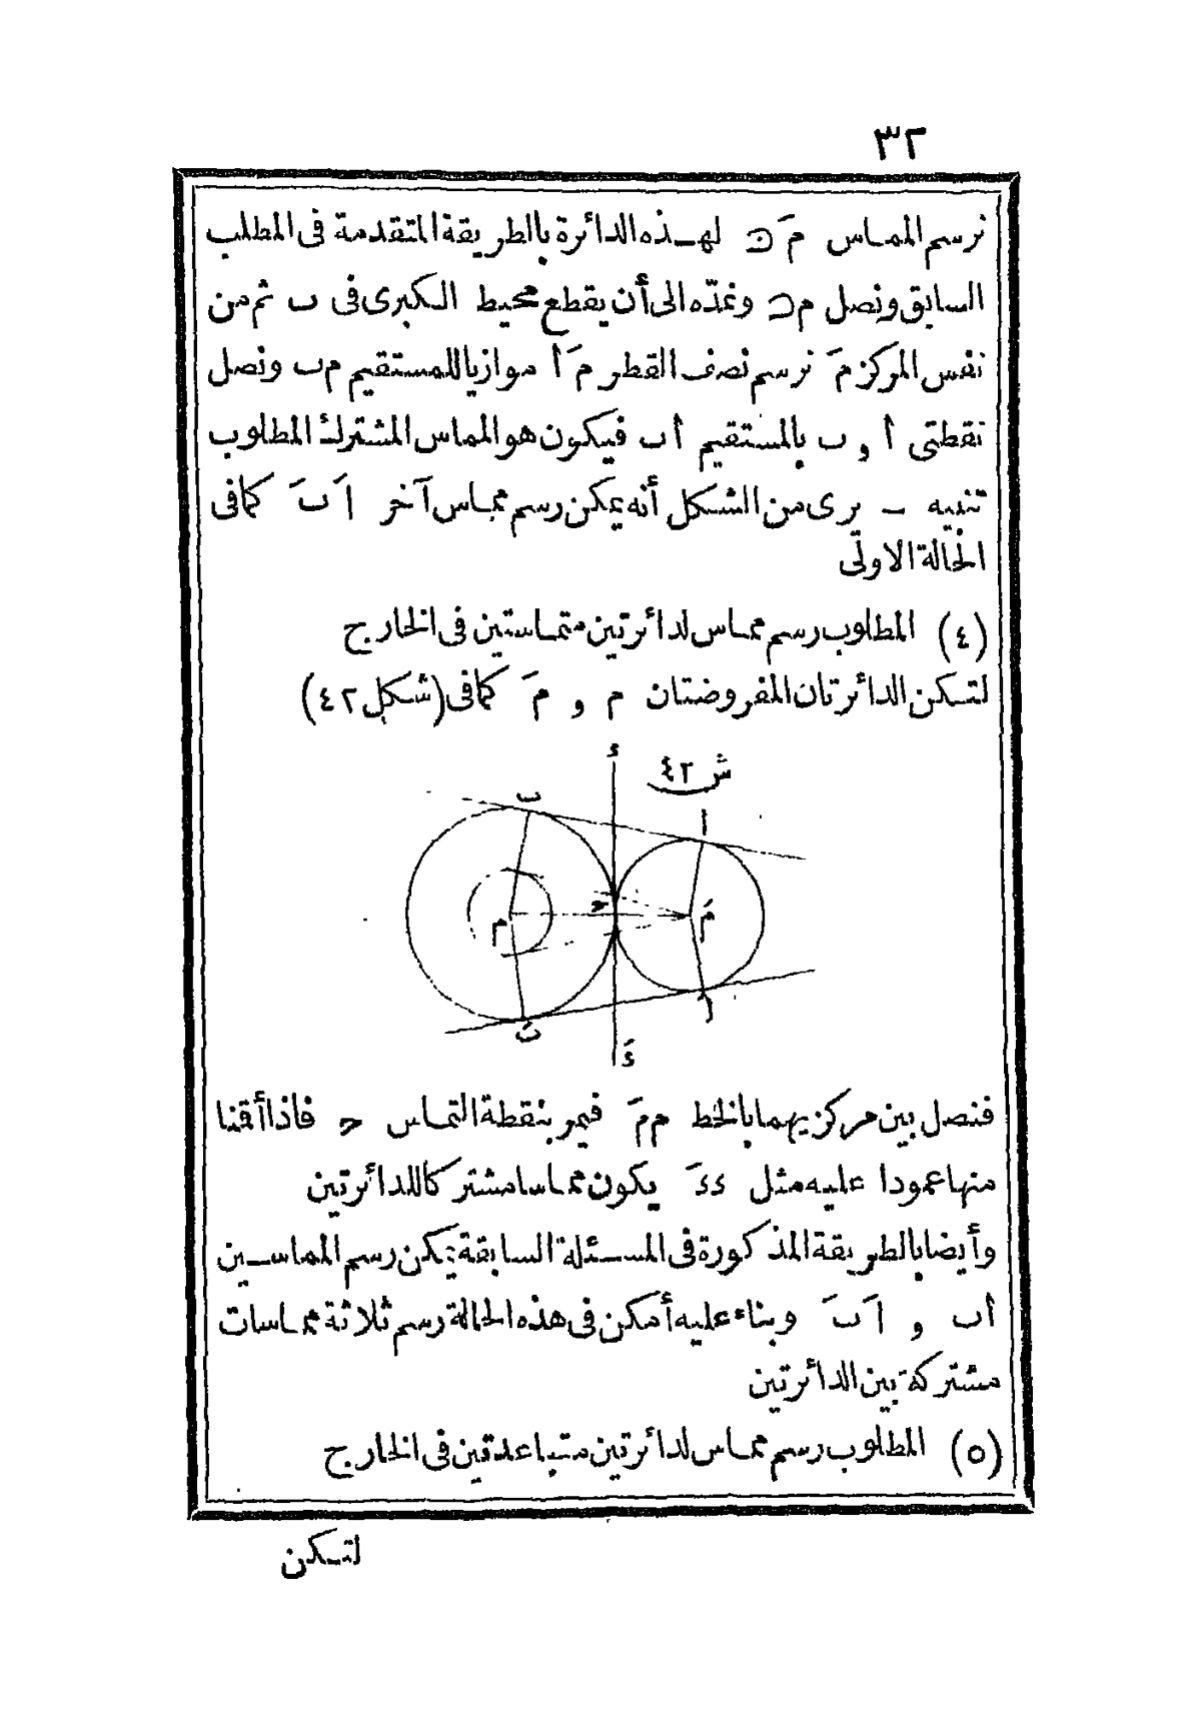 ٣٢
نرسم المماس مَ ن لهذه الدائرة بالطريقة المتقدمة فى المطلب
السابق ونصل م ن ونمدّه الى أن يقطع محيط الكبرى فى ب ثم من
نفس المركز مَ نرسم نصف القطر مَ أ موازيا للمستقيم م ب ونصل
نقطتى أ و ب بالمستقيم أ ب فيكون هو المماس المشترك المطلوب
تنبيه ــ يرى من الشكل أنه يمكن رسم مماس آخر اَ بَ كما فى
الحالة الاولى
(٤) المطلوب رسم مماس لدائرتين متماستين فى الخارج
لتكن الدائرتان المفروضتان م و مَ كما فى (شكل ٤٢)
ش ٤٢
ء
ب
ا
ح
م
مَ
اَ
بَ
ءَ
فنصل بين مركزيهما بالخط م مَ فيمر بنقطة التماس ح فاذا أقمنا
منها عمودا عليه مثل ء ءَ يكون مماسا مشتركا للدائرتين
وأيضا بالطريقة المذكورة فى المسئلة السابقة يمكن رسم المماسين
أ ب و اَ بَ وبناء عليه أمكن فى هذه الحالة رسم ثلاثة مماسات
مشتركة بين الدائرتين
(٥) المطلوب رسم مماس لدائرتين متباعدتين فى الخارج
لتكن